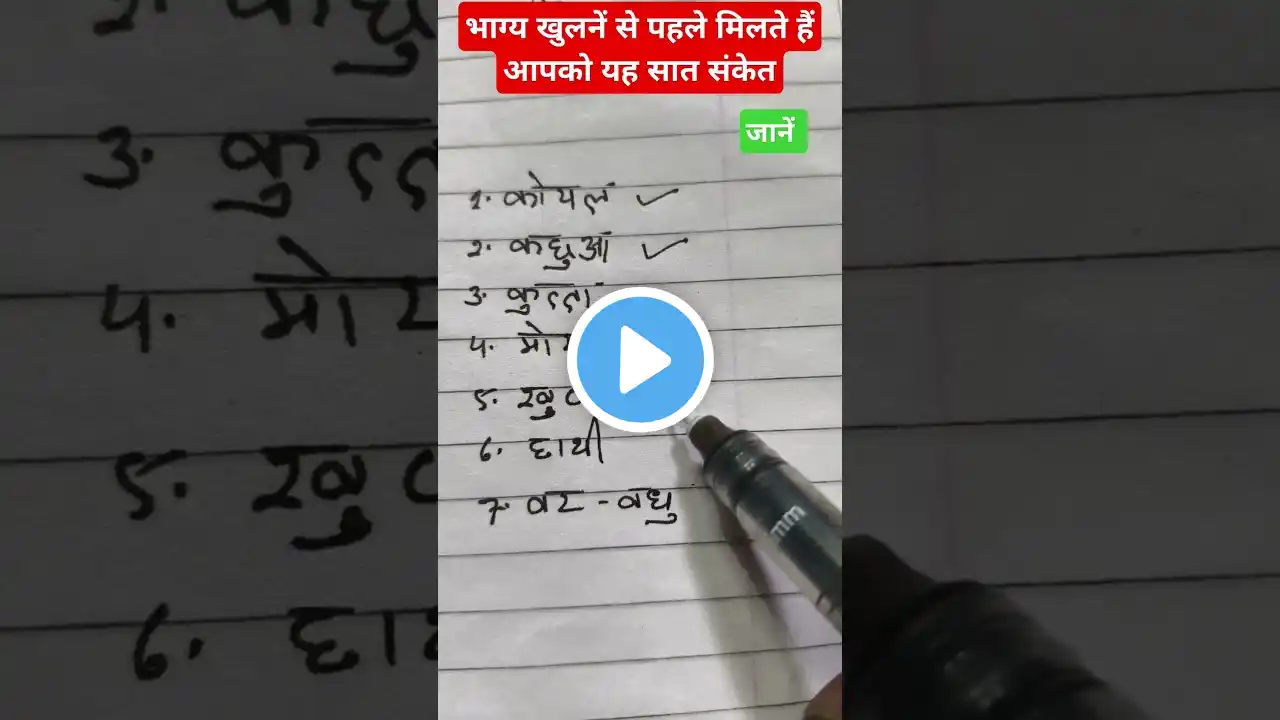 भाग्य खुलनें से पहले मिलते हैं
आपको यह सात संकेत
जानें
१. कोयल
२. कछुआ
३. कुत्ता
४.
५.
६. हाथी
७. वर - वधु
mm